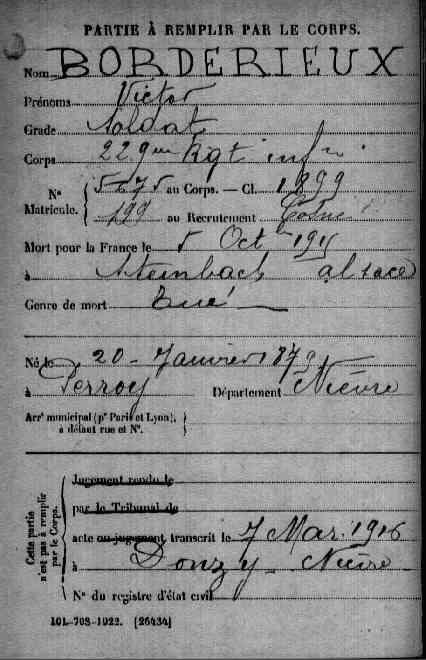 PARTIE À REMPLIR PAR LE CORPS.
Nom BORDERIEUX
Prénoms Victor
Grade Soldat
Corps 229me Rgt infie
N° Matricule. { 5675 au Corps. — Cl. 1899
499 au Recrutement Cosne
Mort pour la France le 5 Octbre 1915
à Steinbach alsace
Genre de mort Tué
Né le 20 - Janvier 1879
à Perroy Département Nièvre
Arrt municipal (pr Paris et Lyon), }
à défaut rue et N°. }
Cette partie n'est pas à remplir par le Corps.
Jugement rendu le
par le Tribunal de
acte ou jugement transcrit le 7 Mar. 1916
à Donzy - Nièvre
N° du registre d'état civil
101-708-1922. [26434]